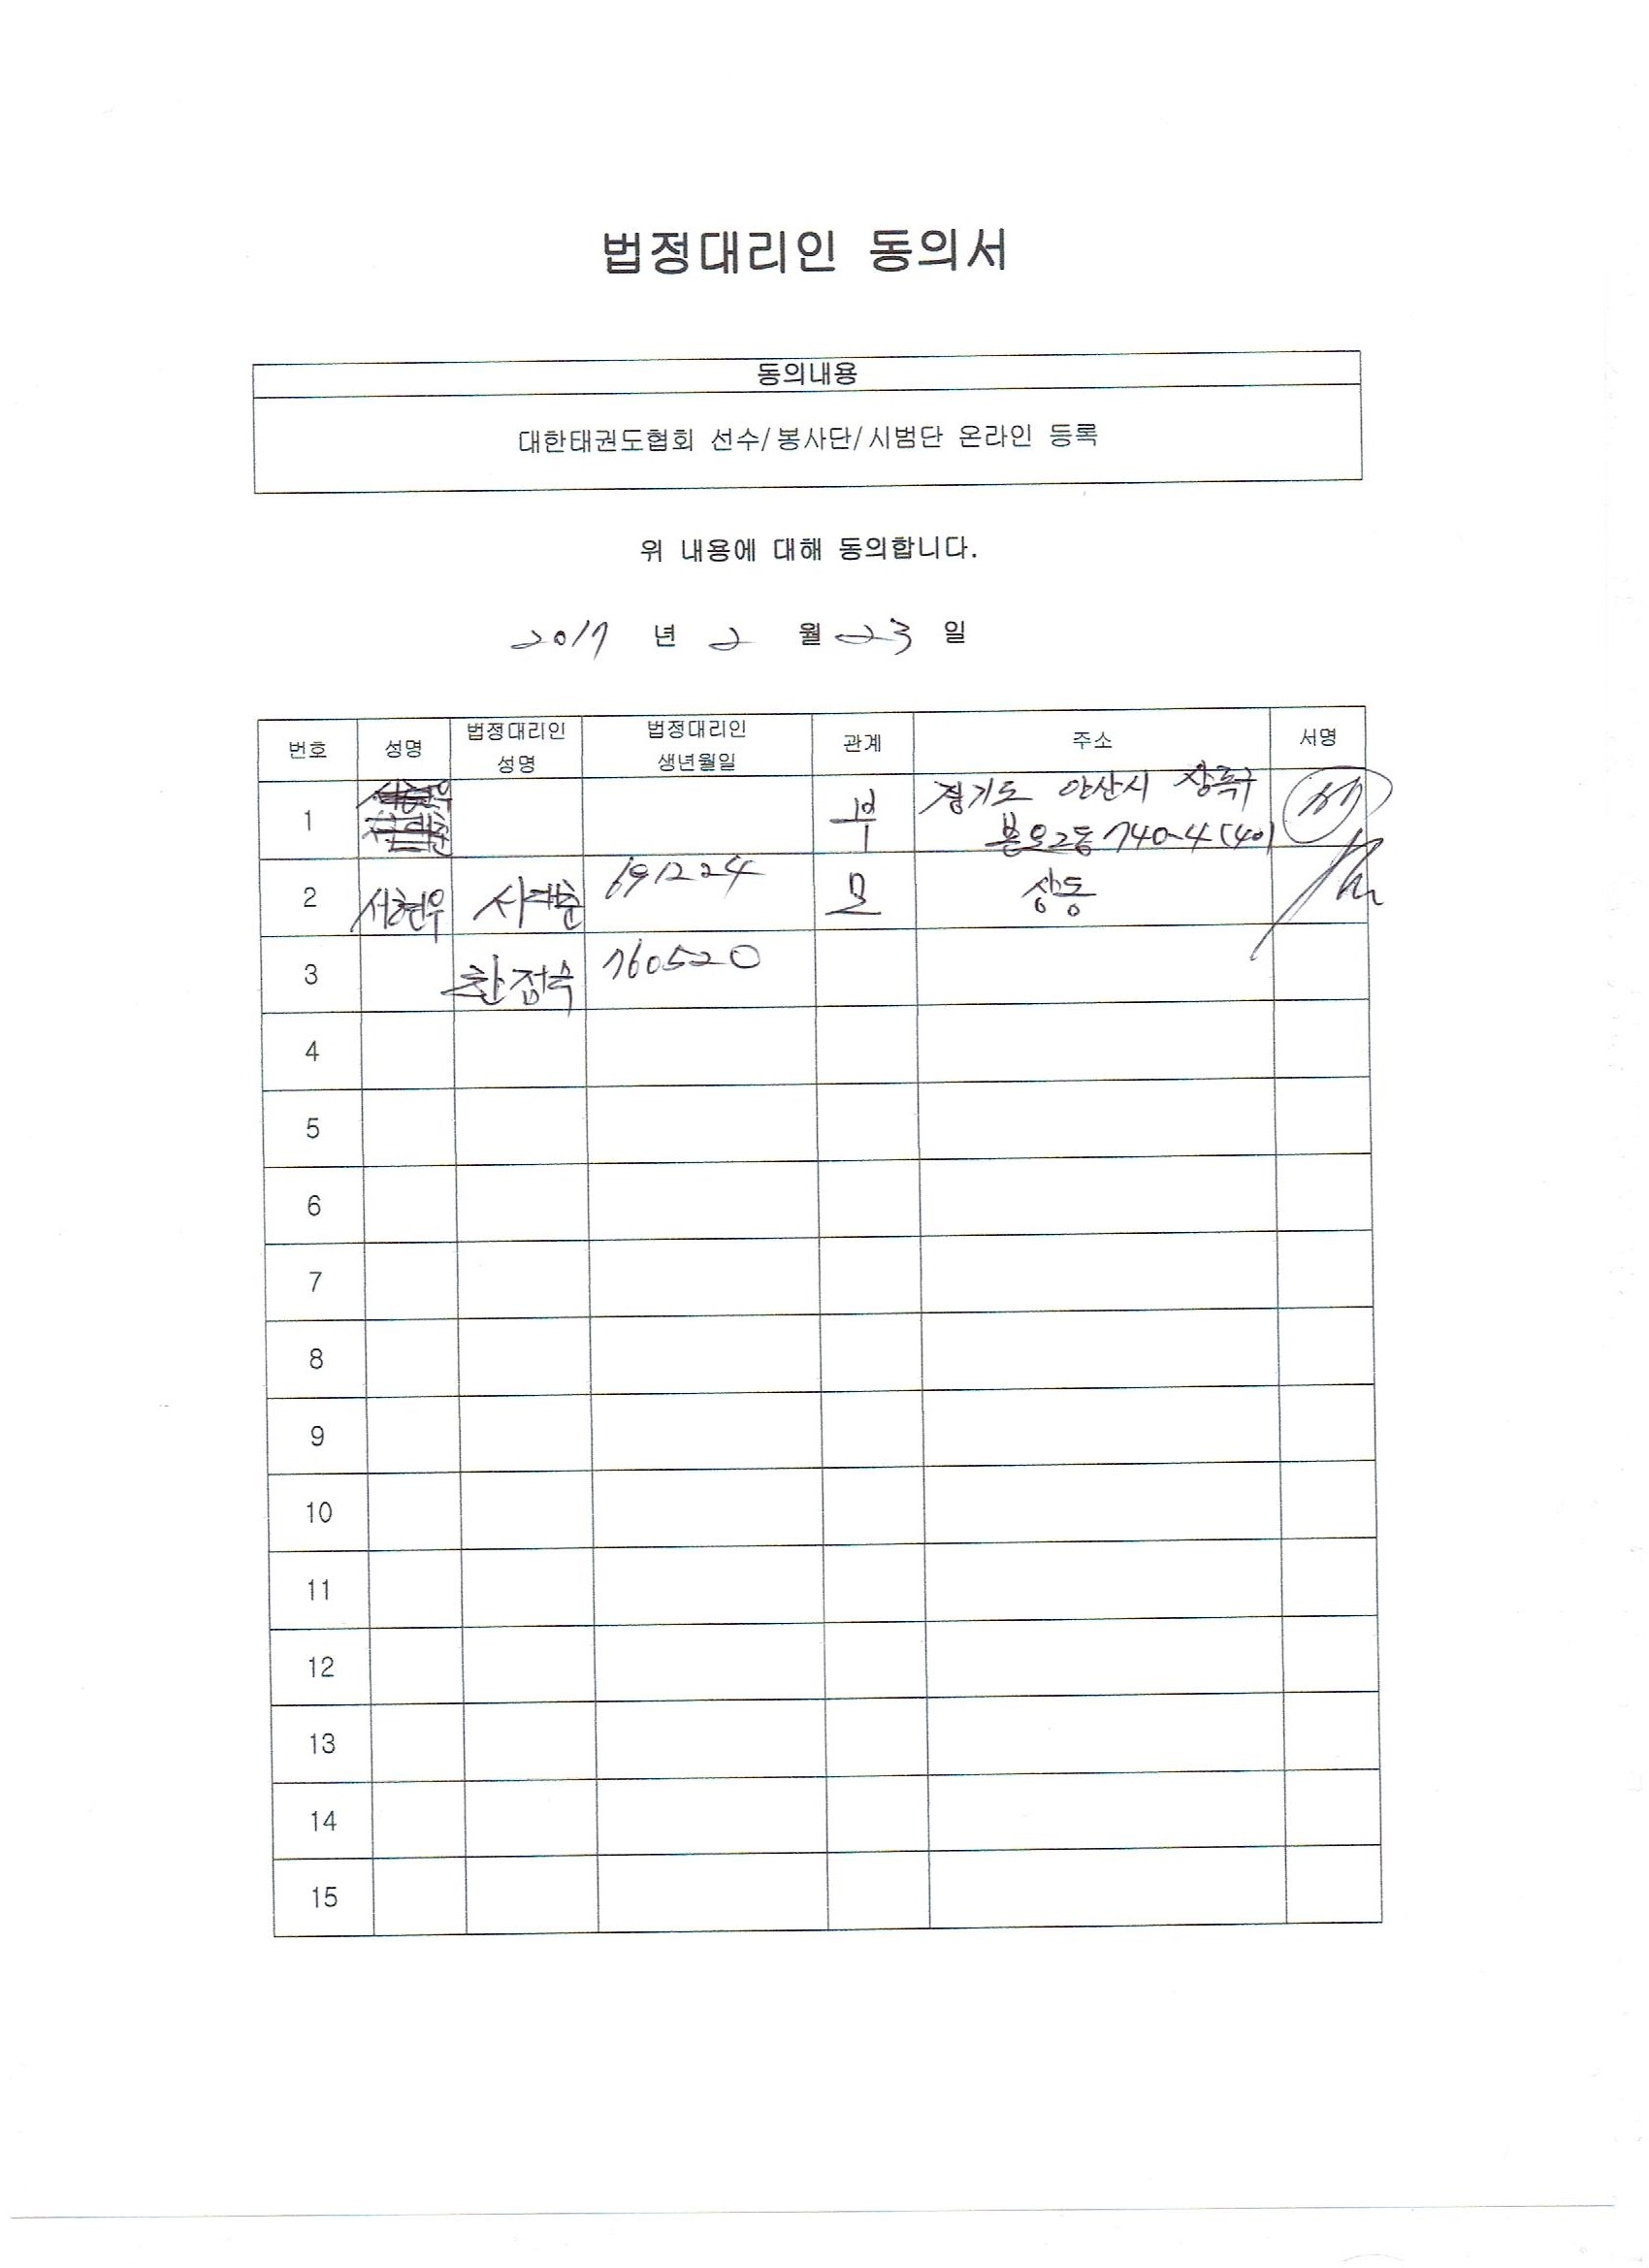 법정대리인 동의서
동의내용
대한태권도협회 선수/봉사단/시범단 온라인 등록
위 내용에 대해 동의합니다.
2017 년 2 월 23 일
번호 성명 법정대리인 성명 법정대리인 생년월일 관계 주소 서명
1 부 경기도 안산시 상록구
본오2동 740-4
2 서현우 691224 모 상동
3 760520
4
5
6
7
8
9
10
11
12
13
14
15